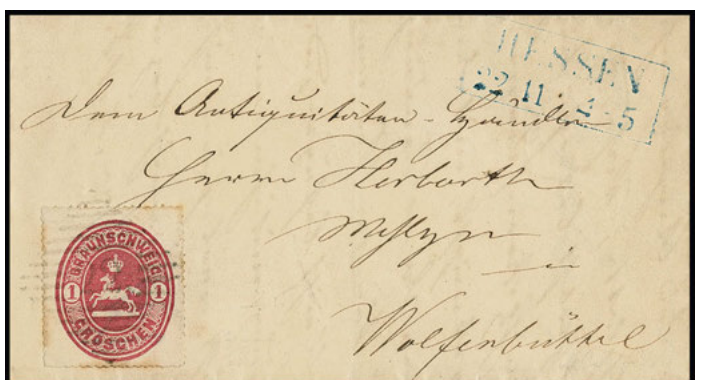 HESSEN
22 11 4-5
Dem Antiquitäten-Händler
Herrn Herbarth
in
Wolfenbüttel
BRAUNSCHWEIG
1 1
GROSCHEN